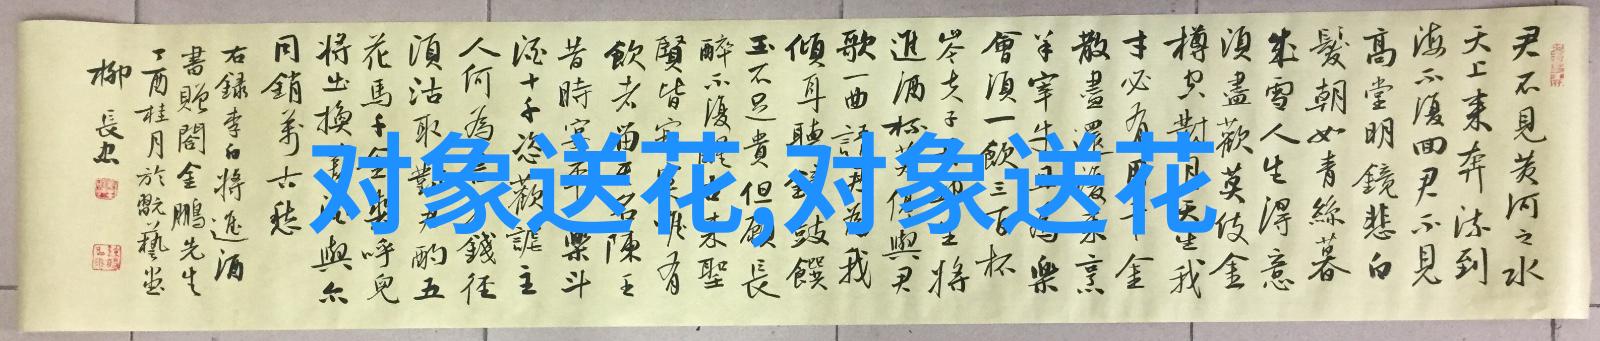 君不見黃河之水
天上來奔流到
海不復回君不見
高堂明鏡悲白
髮朝如青絲暮
成雪人生得意
須盡歡莫使金
樽空對月天生我
才必有用千金
散盡還復來烹
羊宰牛且為樂
會須一飲三百杯
岑夫子丹丘生將
進酒杯莫停與君
歌一曲請君為我
傾耳聽鐘鼓饌
玉不足貴但願長
醉不復醒古來聖
賢皆寂寞惟有
飲者留其名陳王
昔時宴平樂斗
酒十千恣歡謔主
人何為言少錢徑
須沽取對君酌五
花馬千金裘呼兒
將出換美酒與爾
同銷萬古愁
右錄李白將進酒
書贈閣金鵬先生
丁酉桂月於翫藝堂
柳長忠
对象送花,对象送花